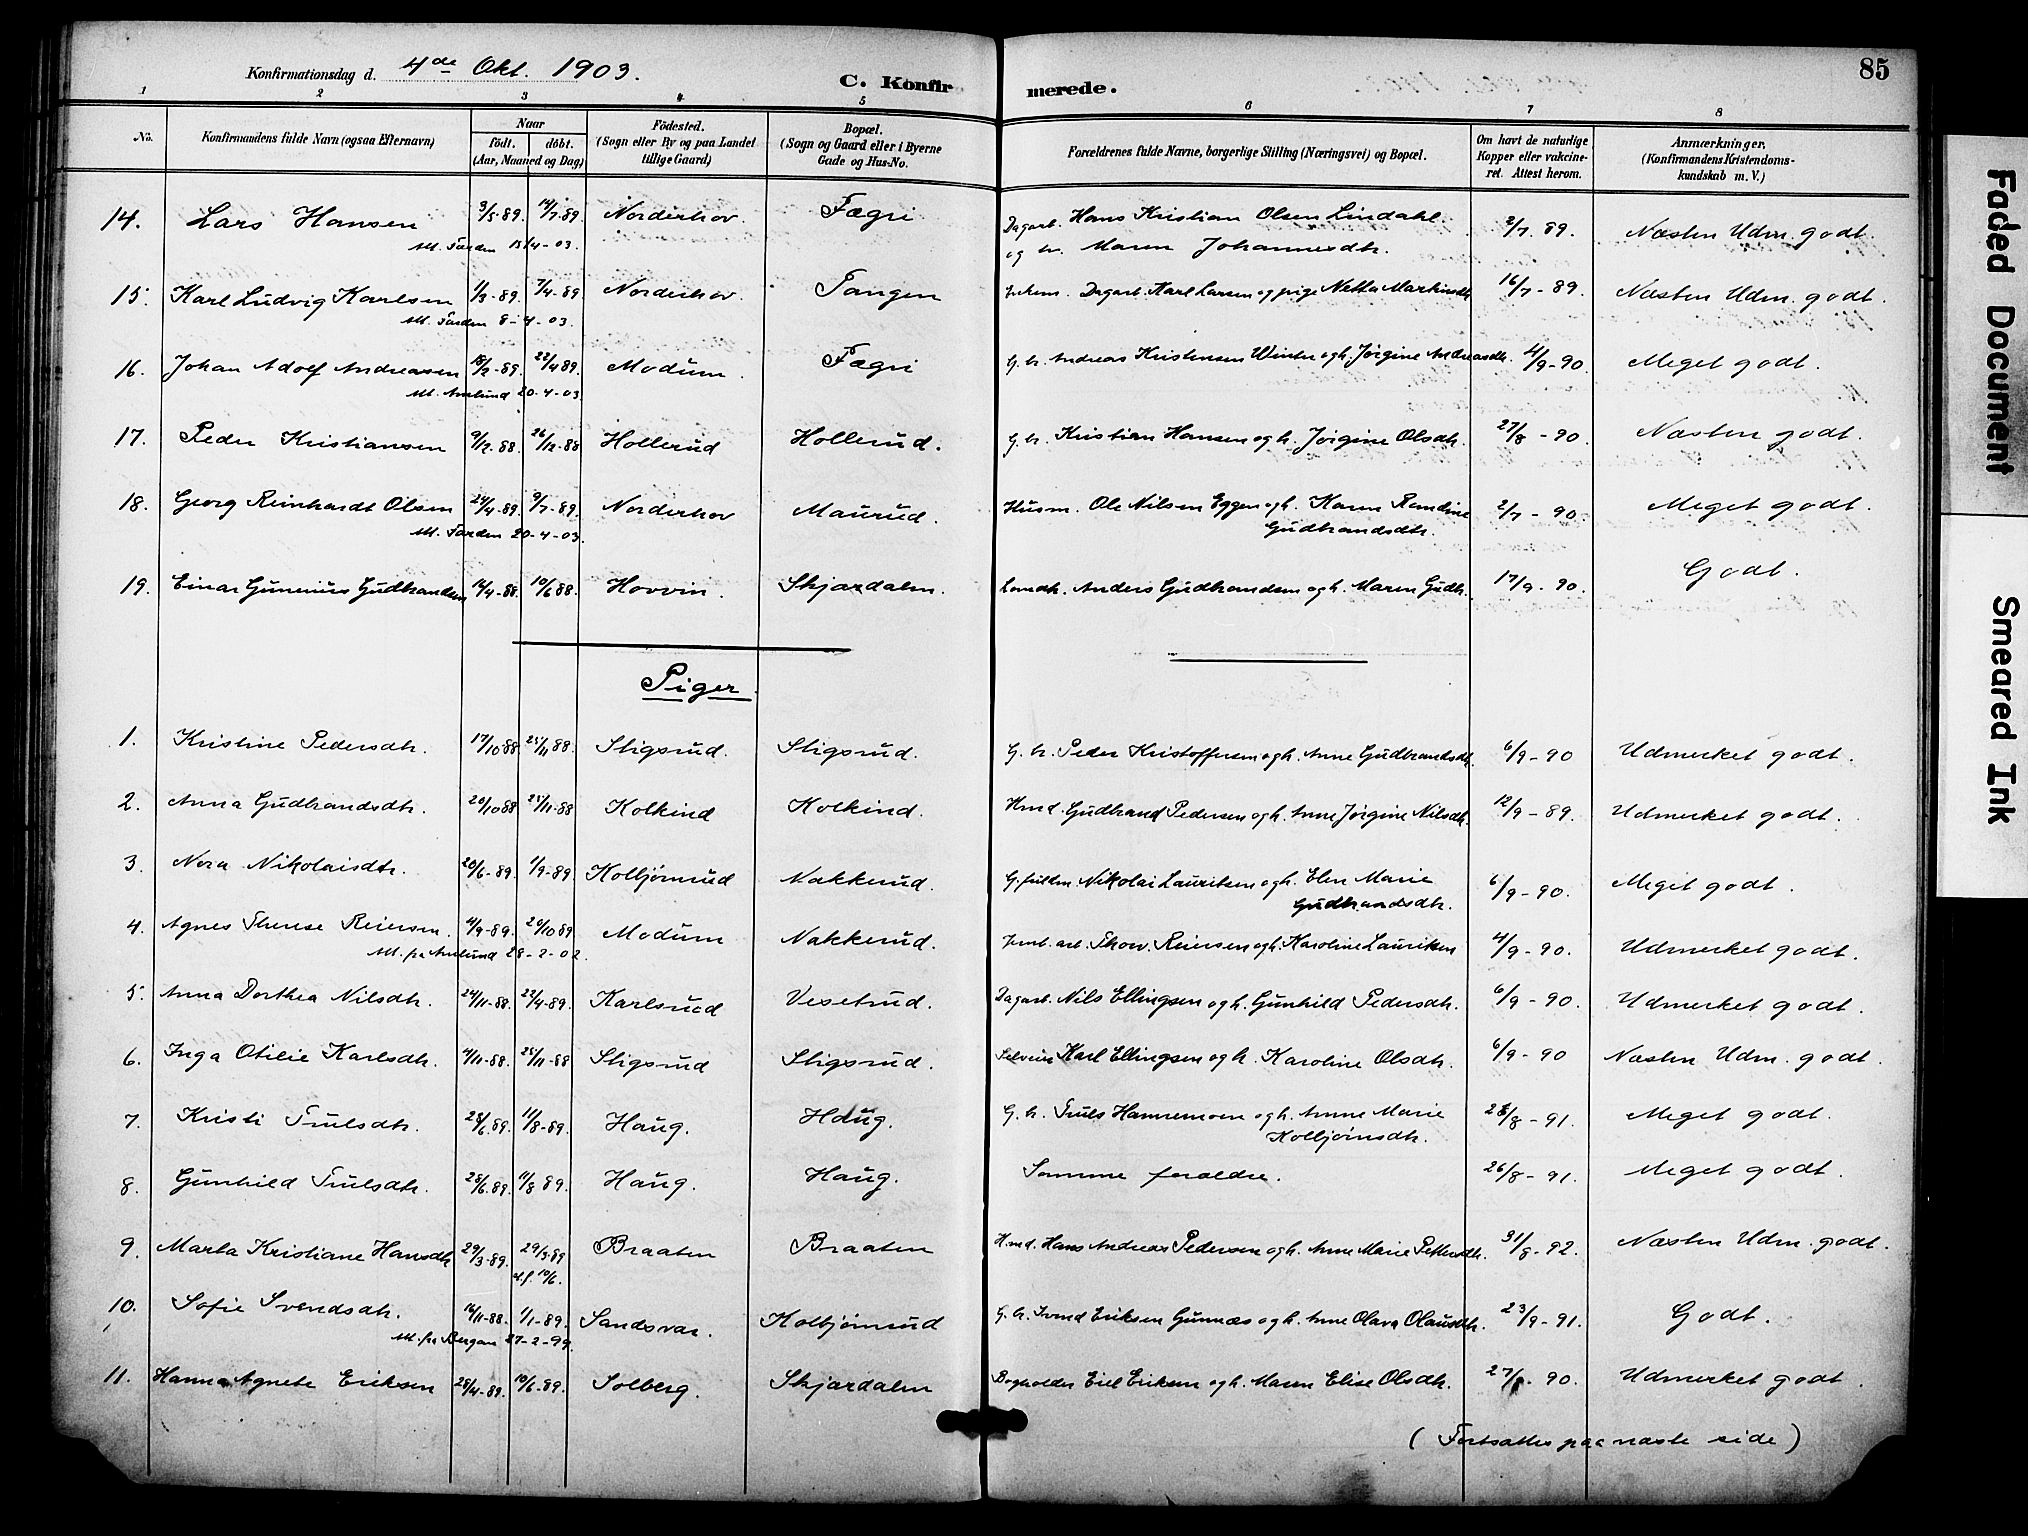 Konfirmationsdag d. 4de Okt. 1903. C. Konfirmerede. 85
1 2 3 4 5 6 7 8
No. Konfirmandens fulde Navn (ogsaa Efternavn) Naar født. døbt. (Aar, Maaned og Dag) Fødested. (Sogn eller By og paa Landet tillige Gaard) Bopæl. (Sogn og Gaard eller i Byerne Gade og Hus-No.) Forældrenes fulde Navne, borgerlige Stilling (Næringsvei) og Bopæl. Om havt de naturlige Kopper eller vakcineret. Attest herom. Anmærkninger, (Konfirmandens Kristendomskundskab m. V.)
14. Lars Hansen 3/5-89. 14/7-89. Norderhov. Fægri Dagarb. Hans Kristian Olsen Lindahl 2/7. 89. Næsten Udm. godt
Farden 13/4-03. og h. Maren Johannesdtr.
15. Karl Ludvig Karlsen 1/3-89. 7/4-89 Norderhov. Tangen Dagarb. Karl Larsen og pige Netta Martinsdtr 16/7-89. Næsten Udm. godt.
Farden 8-4-03.
16. Johan Adolf Andreassen 18/2-89. 22/4 89. Modum. Fægri G. br. Andreas Kristensen Winter og h. Jørgine Andreasdtr. 4/9-90. Meget godt.
20-4-03.
17. Peder Kristiansen 9/12-88. 26/12-88 Hollerud Hollerud. G. br. Kristian Hansen og h. Jørgine Olsdtr. 27/8-90. Næsten godt.
18. Georg Reinhardt Olsen 24/4-89. 9/7-89. Norderhov Maurud. Husm. Ole Nilsen Eggen og h. Karen Randine 2/7-90. Meget godt.
Farden 20-4-03. Gudbrandsdtr.
19. Einar Gunerius Gudbrandsen 14/4-88. 10/6 88. Hovvin. Skjærdalen. Anders Gudbrandsen og h. Maren Gudb. 17/9-90. Godt.
Piger.
1. Kristine Pedersdtr. 17/10 88 25/11 88. Stigsrud. Stigsrud. G. br. Peder Kristoffersen og h. Anne Gudbrandsdtr. 6/9-90 Udmerket godt.
2. Anna Gudbrandsdtr. 20/10 88 25/11-88 Kolkind Kolkind. Hmd. Gudbrand Pedersen og h. Anne Jørgine Nilsdtr. 12/9-89. Udmerket godt.
3. Nora Nikolaisdtr. 20/6-89. 1/9-89 Kolbjørnrud Nakkerud. G. fuldm. Nikolai Lauritsen og h. Elen Marie 6/9-90. Meget godt.
Gudbrandsdtr.
4. Agnes Therese Reiersen. 4/9-89. 20/10 89 Modum Nakkerud. Jernb. arb. Thorv. Reiersen og h. Karoline Lauritsen 4/9-90. Udmerket godt.
28-2-02.
5. Anna Dorthea Nilsdtr. 24/11-88. 22/4-89. Karlsrud Vesetrud. Dagarb. Nils Ellingsen og h. Gunhild Pedersdtr. 6/9-90. Udmerket godt.
6. Inga Otilie Karlsdtr. 4/11-88. 25/11-88 Stigsrud Stigsrud. Selveier Karl Ellingsen og h. Karoline Olsdtr. 6/9-90 Næsten Udm. godt.
7. Kristi Trulsdtr. 28/6 89. 11/8-89. Haug. Haug. G. br. Truls Hamremoen og h. Anne Marie 28/8-91. Meget godt.
Kolbjørnsdtr.
8. Gunhild Trulsdtr. 28/6 89. 11/8 89. Haug. Haug. Samme forældre. 26/8-91. Meget godt.
9. Marta Kristiane Hansdtr 29/3-89. 29/3-89 Braaten Braaten Hmd. Hans Andreas Pedersen og h. Anne Marie Pettersdtr. 31/8-92. Næsten Udm. godt.
st. f. 10/6.
10. Sofie Svendsdtr. 14/11-88. 1/1-89. Sandsvær. Kolbjørnrud G. br. Svend Eriksen Gunnæs og h. Anne Olava Olausdtr. 23/9-91. Godt.
Att. fra Bergan 27-2-99.
11. Hanna Agnete Eriksen 28/4-89. 10/6-89. Solberg. Skjærdalen Bogholder Eriksen og h. Maren Elise Olsdtr. 90. Udmerket godt.
(Fortsættes paa næste side)
Faded Document
Smeared Ink